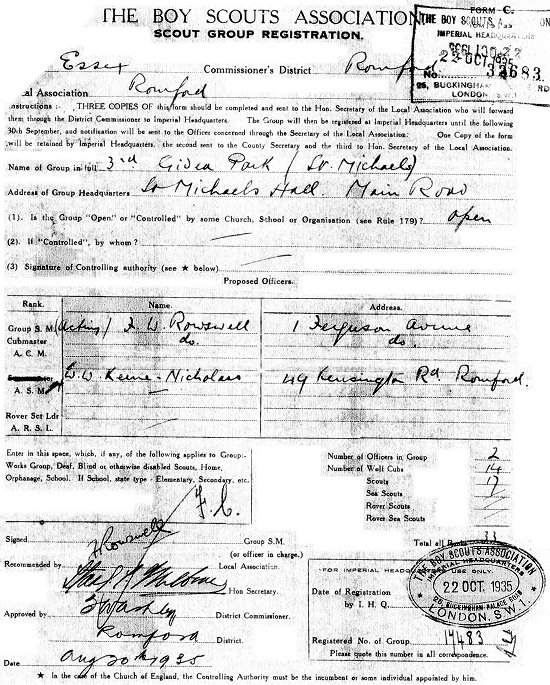 THE BOY SCOUTS ASSOCIATION
SCOUT GROUP REGISTRATION.
FORM C.
THE BOY SCOUTS A
IMPERIAL HEADQUARTERS
22 OCT. 1935
No. 32683
25, BUCKINGHAM RD
LONDON S.W.1
Essex Commissioner's District Romford
al Association Romford
nstructions :- THREE COPIES of this form should be completed and sent to the Hon. Secretary of the Local Association who will forward
them through the District Commissioner to Imperial Headquarters. The Group will then be registered at Imperial Headquarters until the following
30th September, and notification will be sent to the Officer concerned through the Secretary of the Local Association. One Copy of the form
will be retained by Imperial Headquarters, the second sent to the County Secretary and the third to Hon. Secretary of the Local Association.
Name of Group in full 3rd Gidea Park (St. Michaels)
Address of Group Headquarters St Michaels Hall. Main Road
(1). Is the Group "Open" or "Controlled" by some Church, School or Organisation (see Rule 179)? open
(2). If "Controlled", by whom?
(3) Signature of Controlling authority (see ★ below)
Proposed Officers.
Rank. Name. Address.
Group S.M. (Acting) F. W. Rowswell 1 Ferguson Avenue
Cubmaster do. do.
A. C. M.
A. S. M. W. W. Keene-Nicholass 49 Kensington Rd Romford.
Rover Sct Ldr
A. R. S. L.
Enter in this space, which, if any, of the following applies to Group:-
Works Group, Deaf, Blind or otherwise disabled Scouts, Home,
Orphanage, School. If School, state type - Elementary, Secondary, etc.
Number of Officers in Group 2
Number of Wolf Cubs 14
Scouts 17
Sea Scouts
Rover Scouts
Rover Sea Scouts
Total all Ranks 33
Signed Rowswell Group S.M.
(or officer in charge.)
Recommended by Local Association.
Hon. Secretary
Approved by District Commissioner.
Romford District.
Date Aug 20th 1935
FOR IMPERIAL HEADQ USE ONLY.
Date of Registration
by I. H. Q.
THE BOY SCOUTS ASSOCIATION
IMPERIAL HEADQUARTERS
22 OCT. 1935
25, BUCKINGHAM PALACE ROAD
LONDON, S.W.1.
Registered No. of Group 14483
Please quote this number in all correspondence.
★ In the case of the Church of England, the Controlling Authority must be the incumbent or some individual appointed by him.